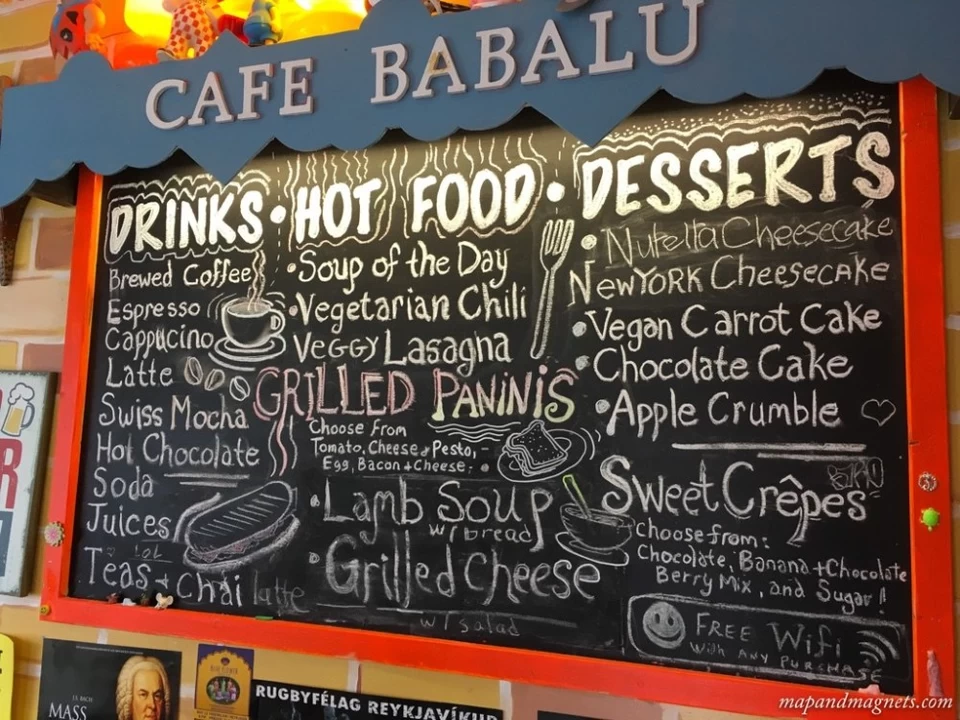 CAFE BABALU
DRINKS • HOT FOOD • DESSERTS
Brewed Coffee
Espresso
Cappucino
Latte
Swiss Mocha
Hot Chocolate
Soda
Juices
Teas + Chai latte
•Soup of the Day
•Vegetarian Chili
Veggy Lasagna
GRILLED PANINIS
Choose From
Tomato, Cheese + Pesto, -
Egg, Bacon + Cheese.
•Lamb Soup
w/bread
•Grilled Cheese
w/ salad
• Nutella Cheesecake
New York Cheesecake
•Vegan Carrot Cake
•Chocolate Cake
•Apple Crumble
Sweet Crêpes
Choose from:
Chocolate, Banana + Chocolate
Berry Mix, and Sugar!
FREE Wifi
With ANY PURCHASE
J.S. BACH
MASS
RUGBYFÉLAG REYKJAVÍKUR
mapandmagnets.com